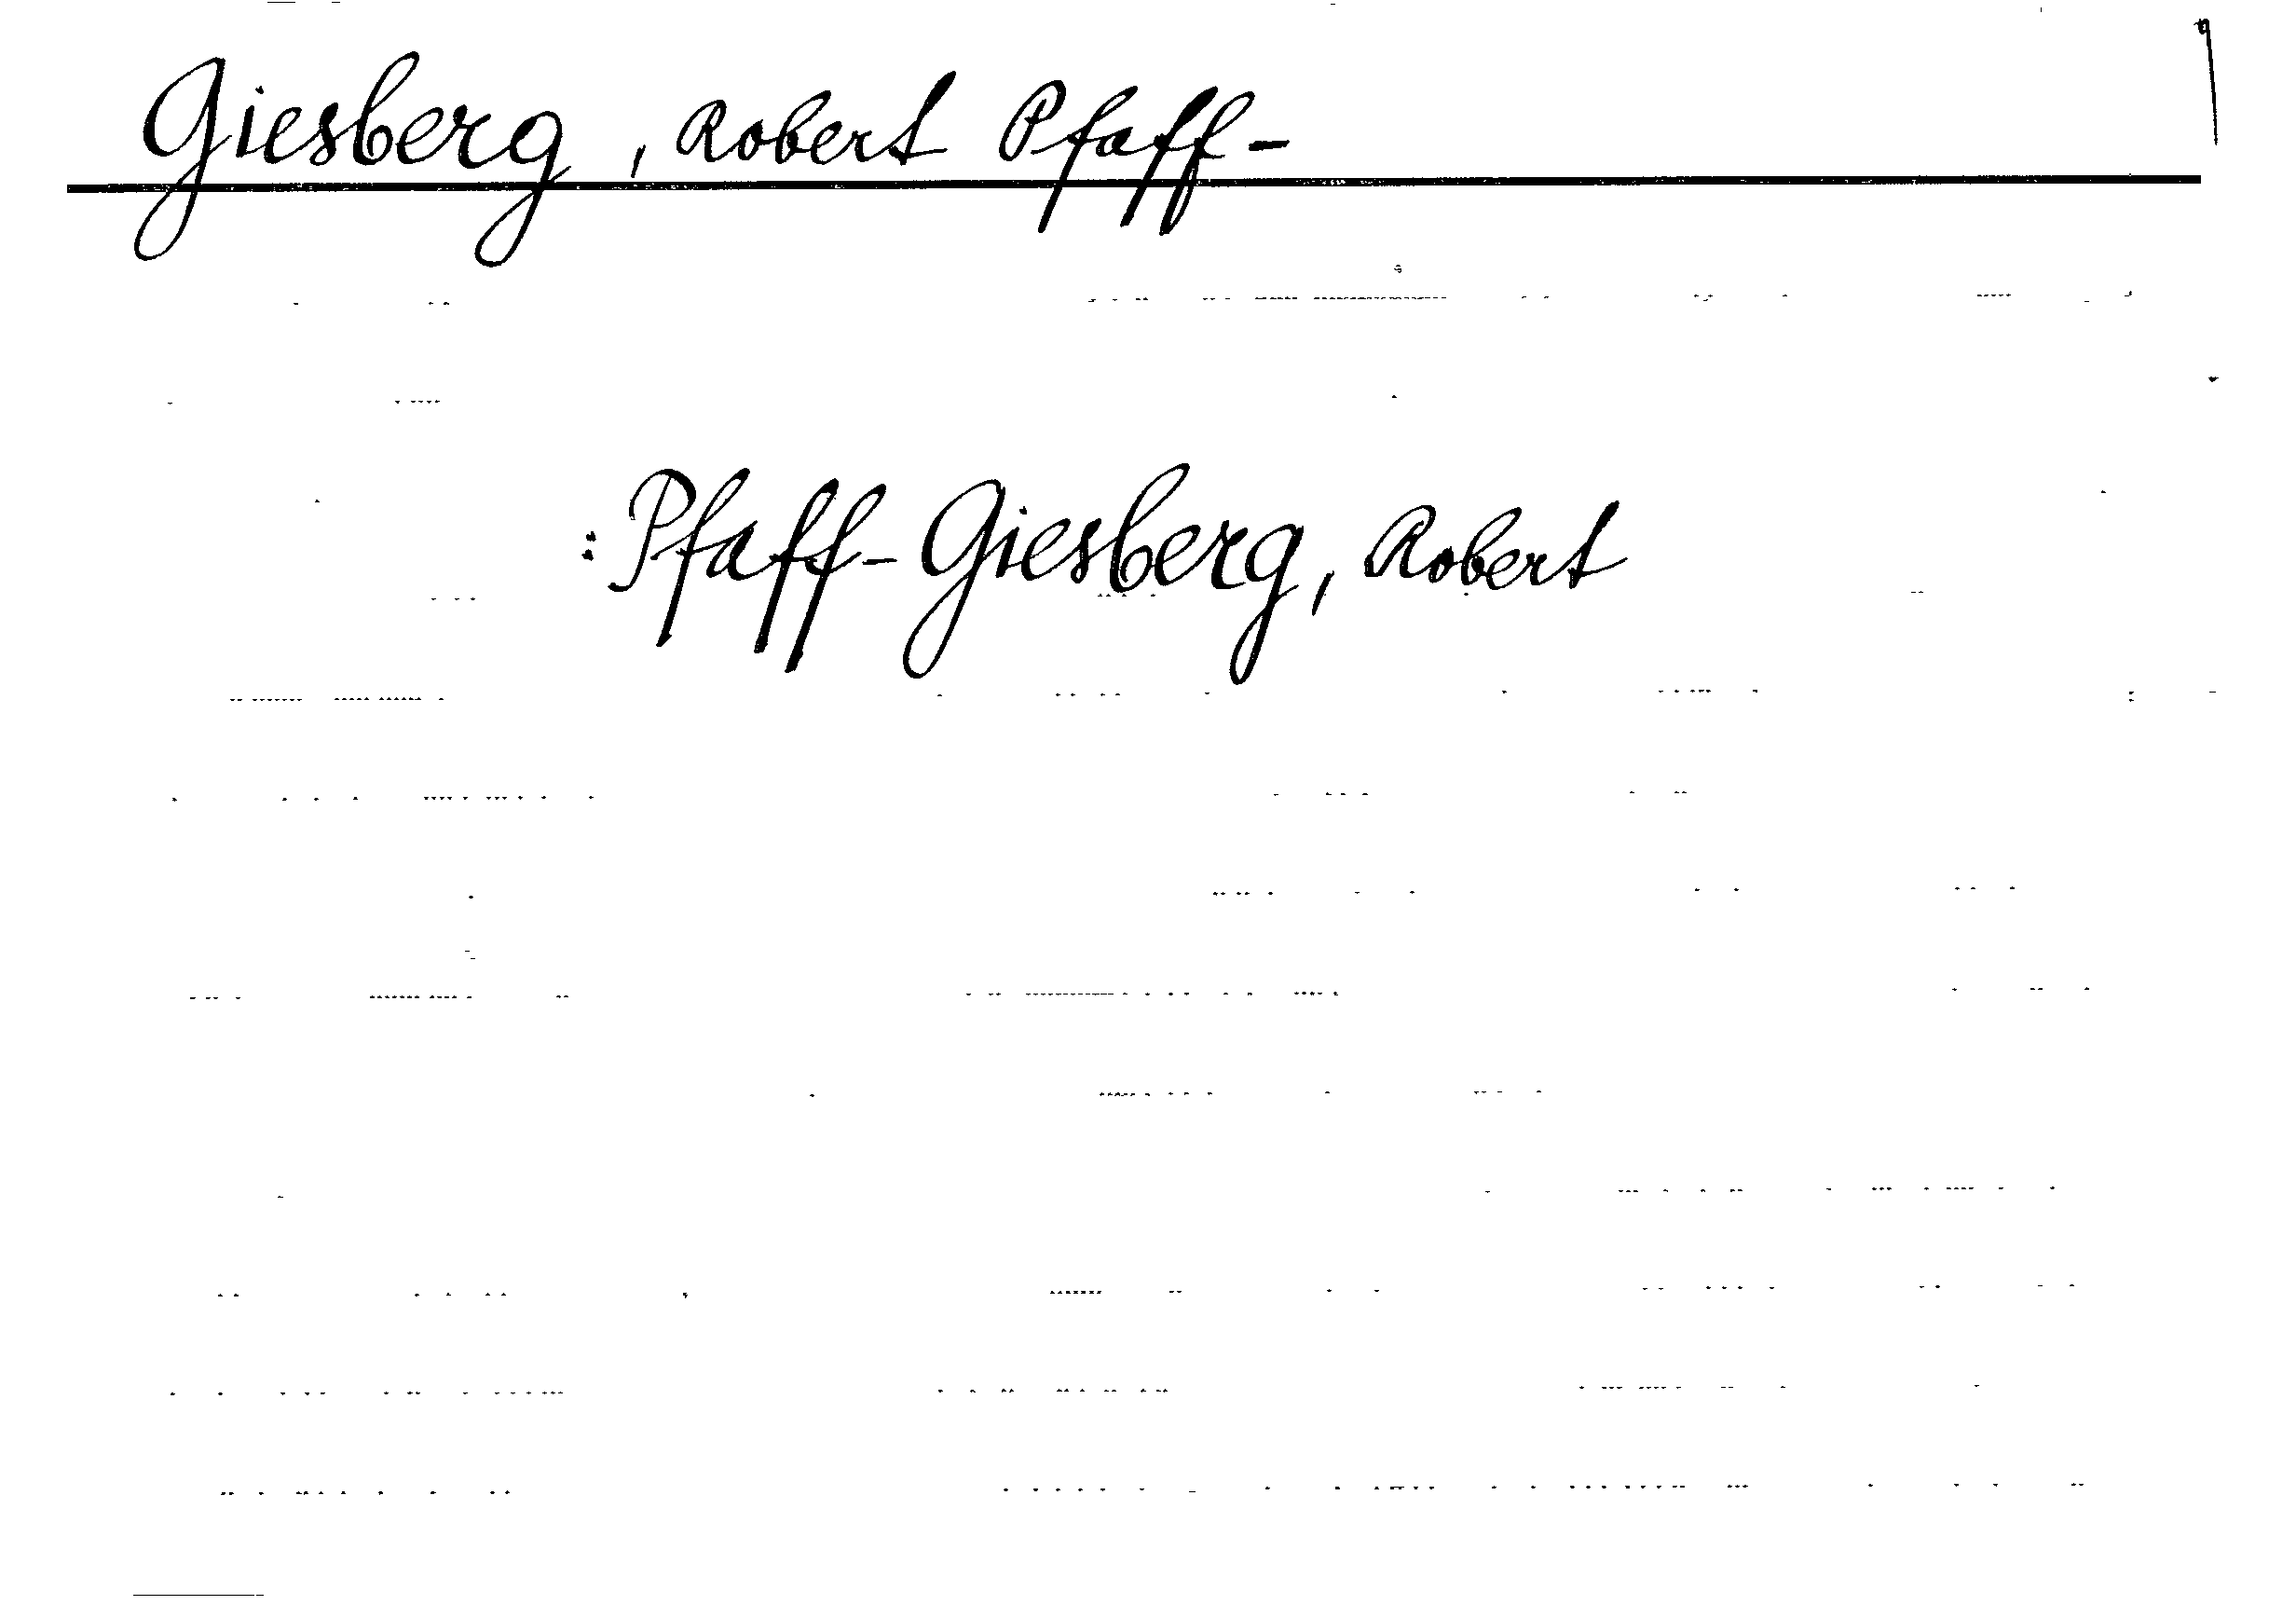 Giesberg, Robert Pfaff-
: Pfaff-Giesberg, Robert